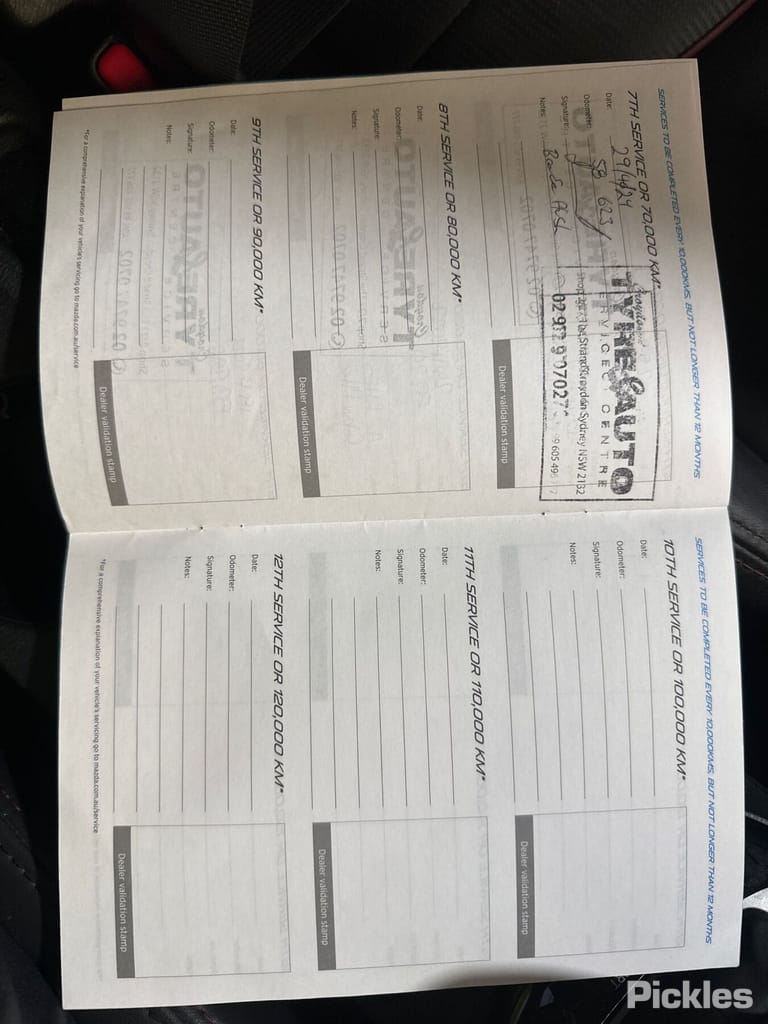 SERVICES TO BE COMPLETED EVERY 10,000KMS, BUT NOT LONGER THAN 12 MONTHS
7TH SERVICE OR 70,000 KM*
Date: 29/4/24
Odometer: 58 625
Signature:
Notes:
Croydon
TYRE & AUTO
SERVICE CENTRE
The Strand Croydon Sydney NSW 2132
Dealer validation stamp
8TH SERVICE OR 80,000 KM*
Date:
Odometer:
Signature:
Notes:
Dealer validation stamp
9TH SERVICE OR 90,000 KM*
Date:
Odometer:
Signature:
Notes:
Dealer validation stamp
*For a comprehensive explanation of your vehicle's servicing go to mazda.com.au/service
SERVICES TO BE COMPLETED EVERY 10,000KMS, BUT NOT LONGER THAN 12 MONTHS
10TH SERVICE OR 100,000 KM*
Date:
Odometer:
Signature:
Notes:
Dealer validation stamp
11TH SERVICE OR 110,000 KM*
Date:
Odometer:
Signature:
Notes:
Dealer validation stamp
12TH SERVICE OR 120,000 KM*
Date:
Odometer:
Signature:
Notes:
Dealer validation stamp
*For a comprehensive explanation of your vehicle's servicing go to mazda.com.au/service
Pickles